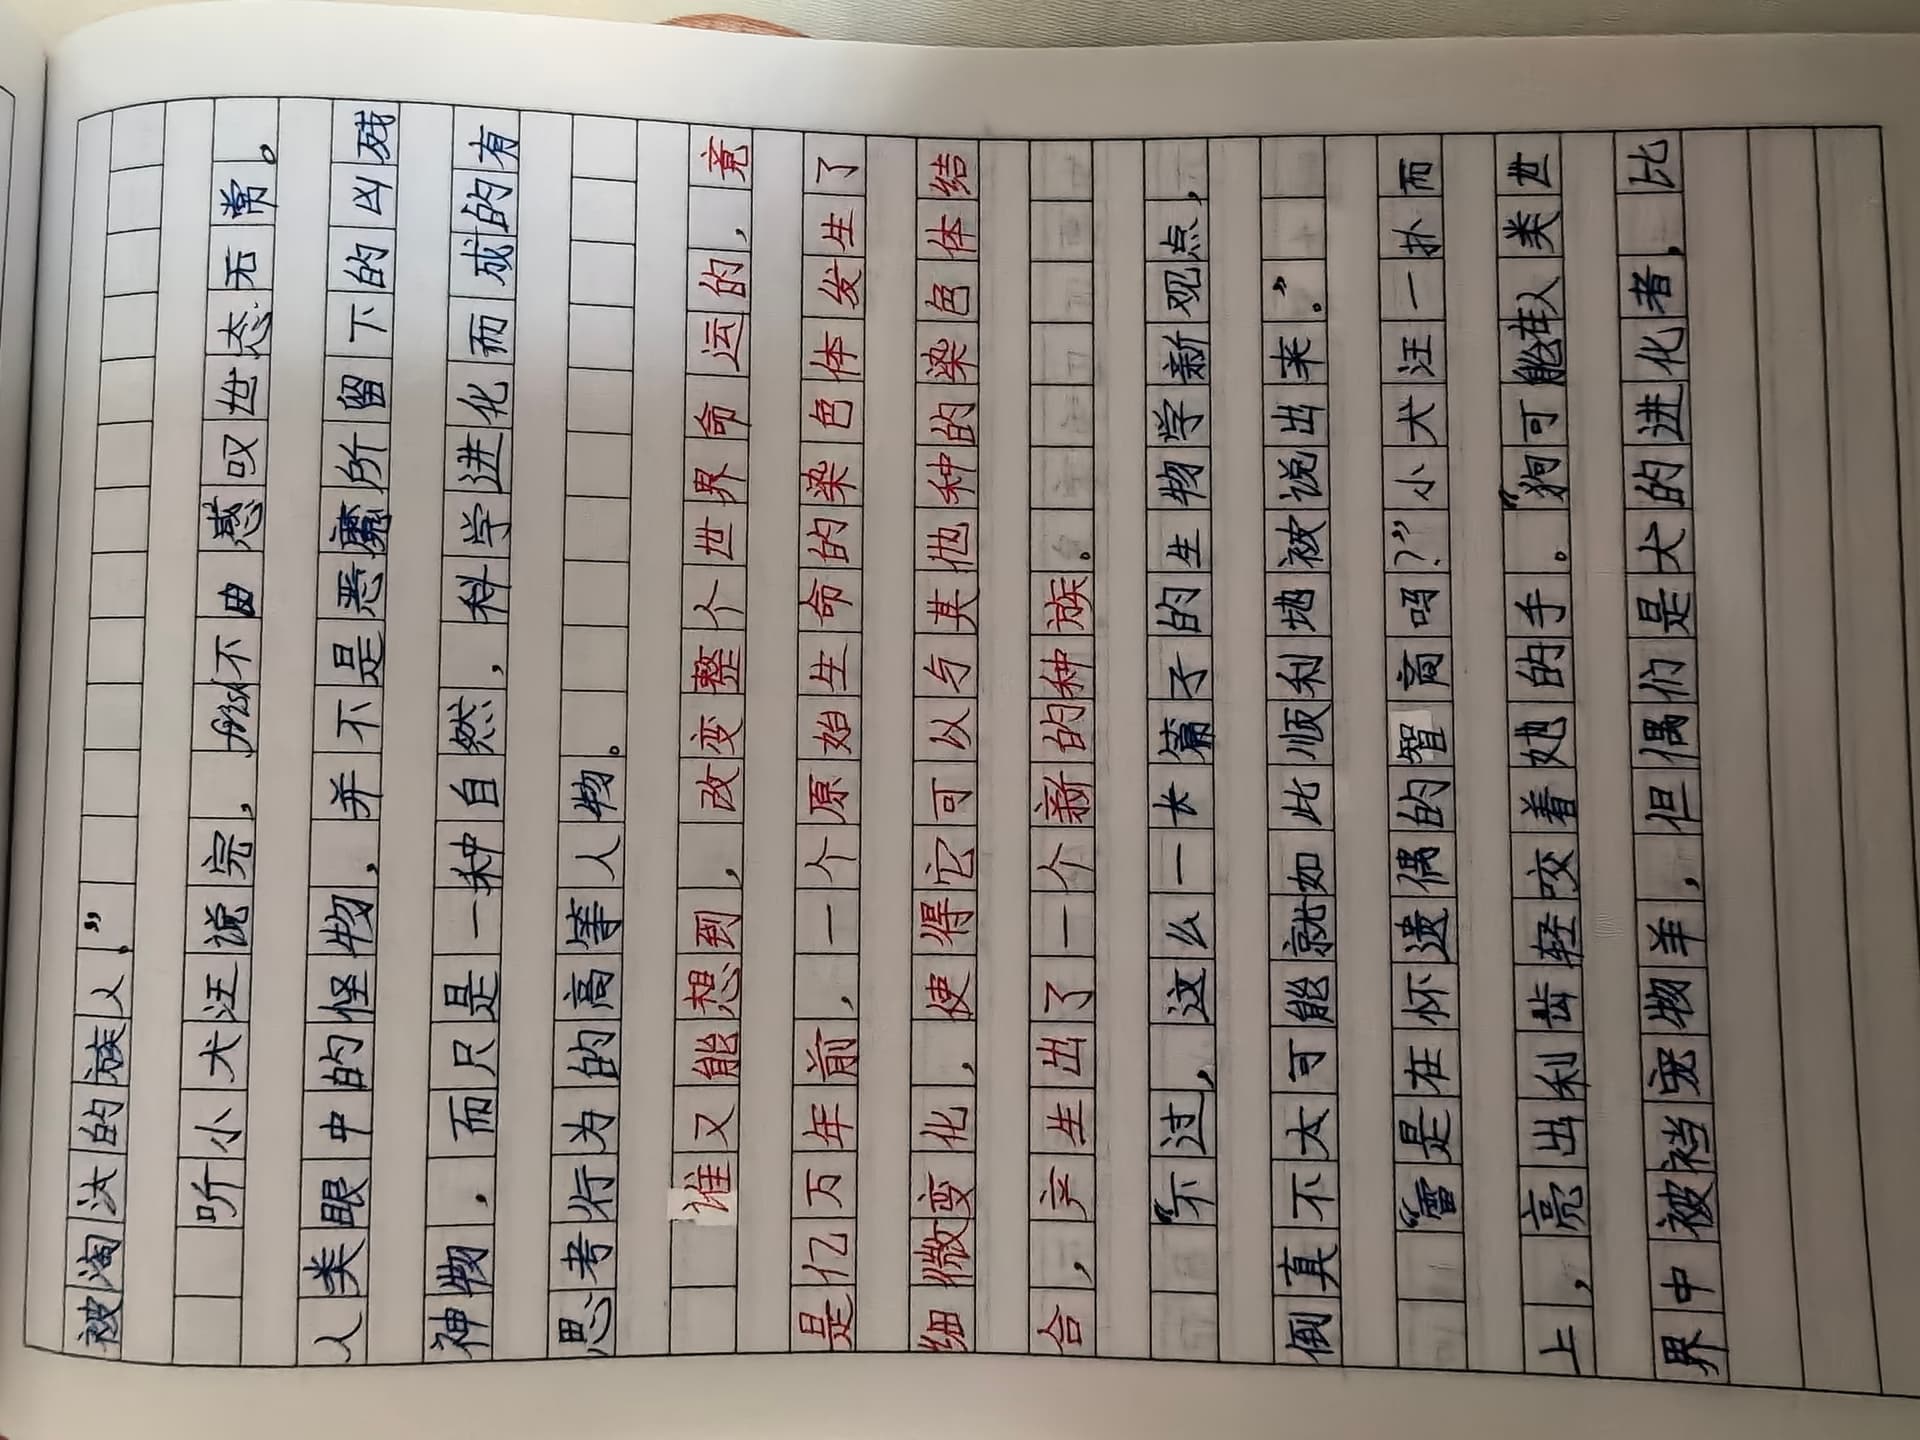 被淘汰的族人。”
听小犬汪说完，不由感叹世态无常。
人类眼中的怪物，并不是恶魔所留下的凶残
神物，而只是一种自然，科学进化而成的有
思考行为的高等人物。
谁又能想到，改变整个世界命运的，竟
是亿万年前，一个原始生命的染色体发生了
细微变化，使得它可以与其他种的染色体结
合，产生出了一个新的种族。
“不过，这么一长篇子的生物学新观点，
倒真不太可能就如此顺利地被说出来。”
“雷是在怀遗偶的智商吗？”小犬汪一扑而
上，亮出利齿轻咬着她的手。“狗可能在人类世
界中被裆宠物羊，但偶们是犬的进化者，比